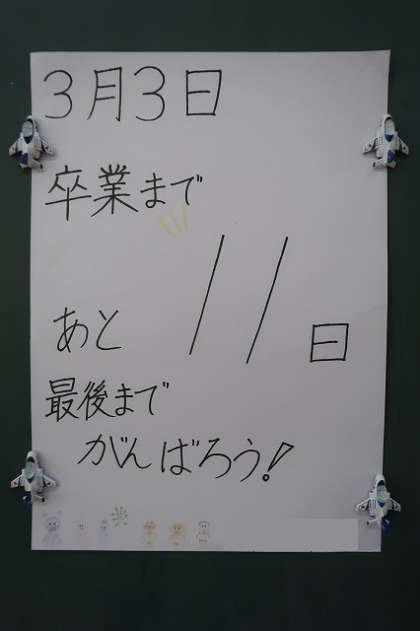 3月3日
卒業まで
あと 11日
最後まで
がんばろう!